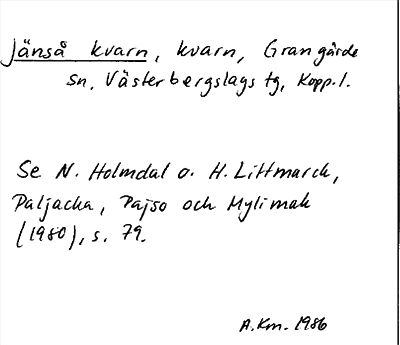 Jänså kvarn, kvarn, Grangärde
sn, Västerbergslags tg, Kopp. l.
Se N. Holmdal o. H. Littmarck,
Paljacka, Pajso och Mylimak
(1980), s. 79.
A.Km. 1986